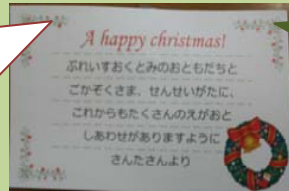 A happy christmas!
ぷれいすおくとみのおともだちと
ごかぞくさま、せんせいがたに、
これからもたくさんのえがおと
しあわせがありますように
さんたさんより